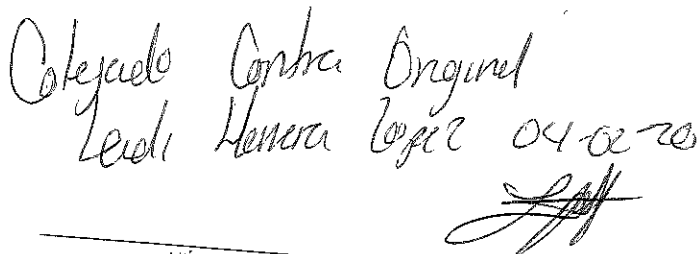 Cotejado Contra Original
Leidi Herrera Lopez 04-02-20